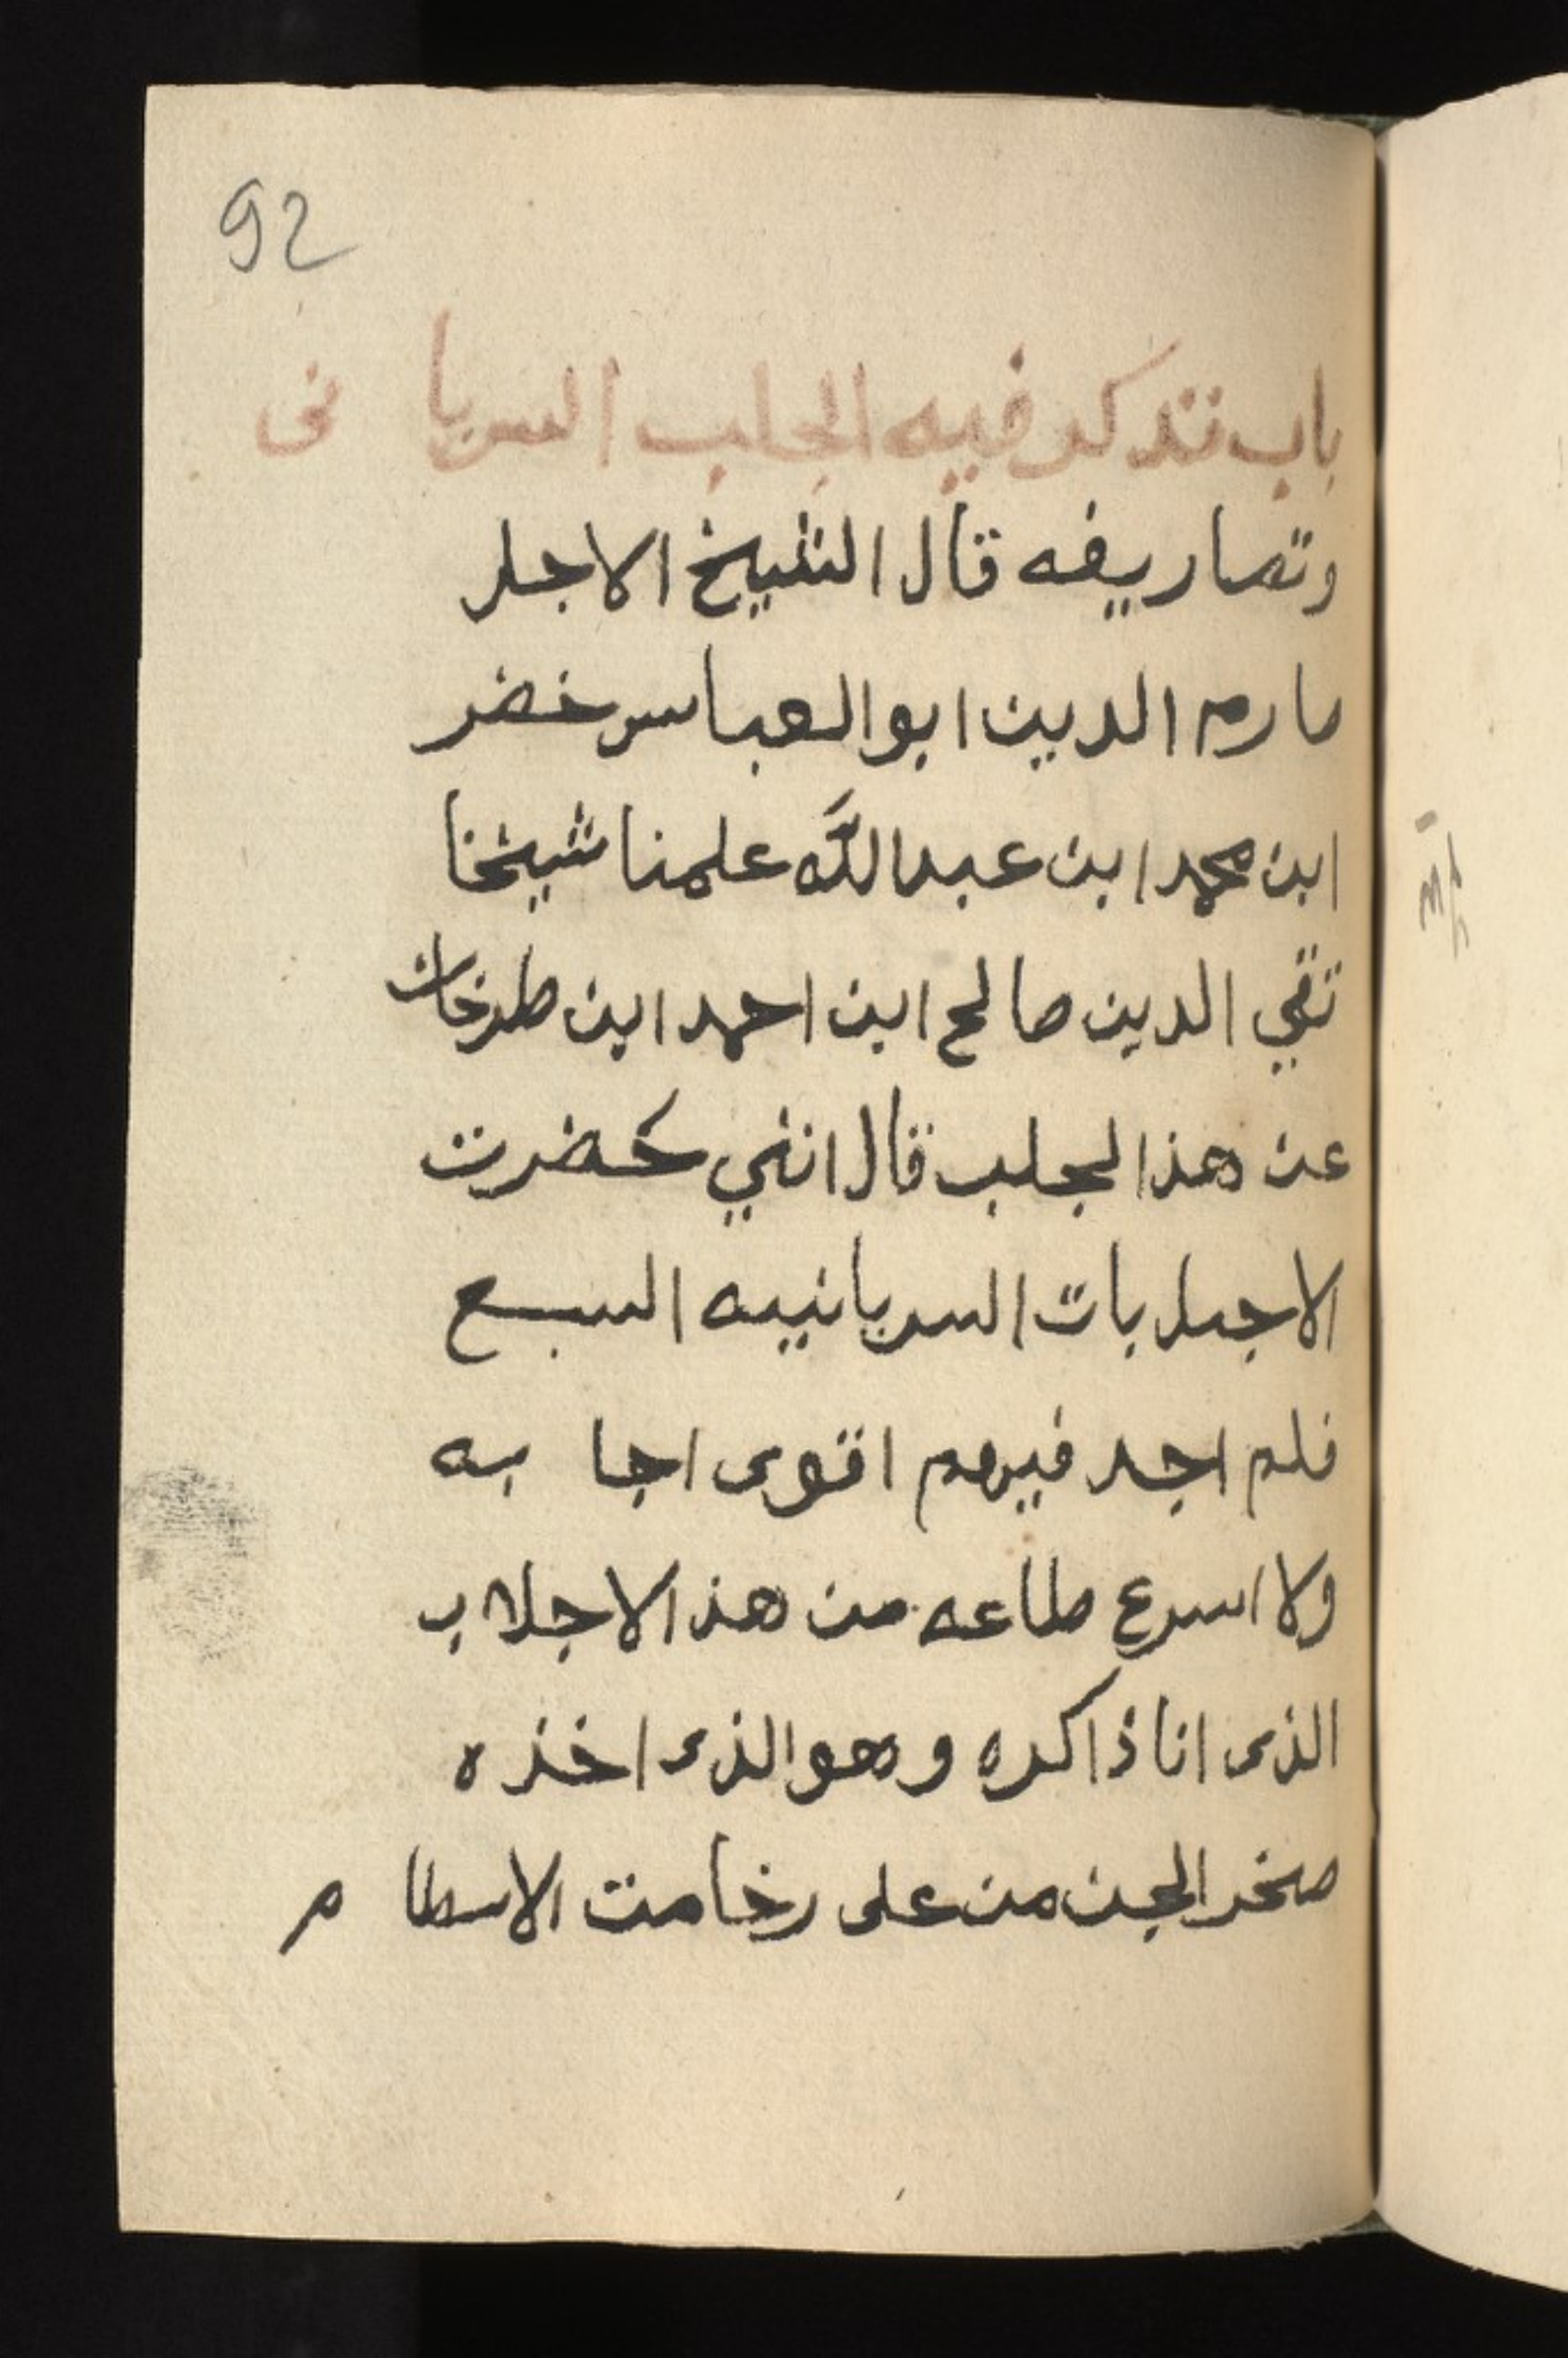 92
باب نذكر فيه الجلب السريا نى
وتصاريفه قال الشيخ الاجل
صارم الدين ابو العباس خضر
ابن محمد ابن عبد الله علمنا شيخنا
تقي الدين صالح ابن احمد ابن طرخان
عن هذا لجلب قال انني حضرت
الاجلبات السريانيه السبع
فلم اجد فيهم اقوى اجا به
ولا اسرع طاعه من هذ الاجلاب
الذى انا ذاكره وهو الذى اخذه
صخر الجن من على رخامت الاسطا م